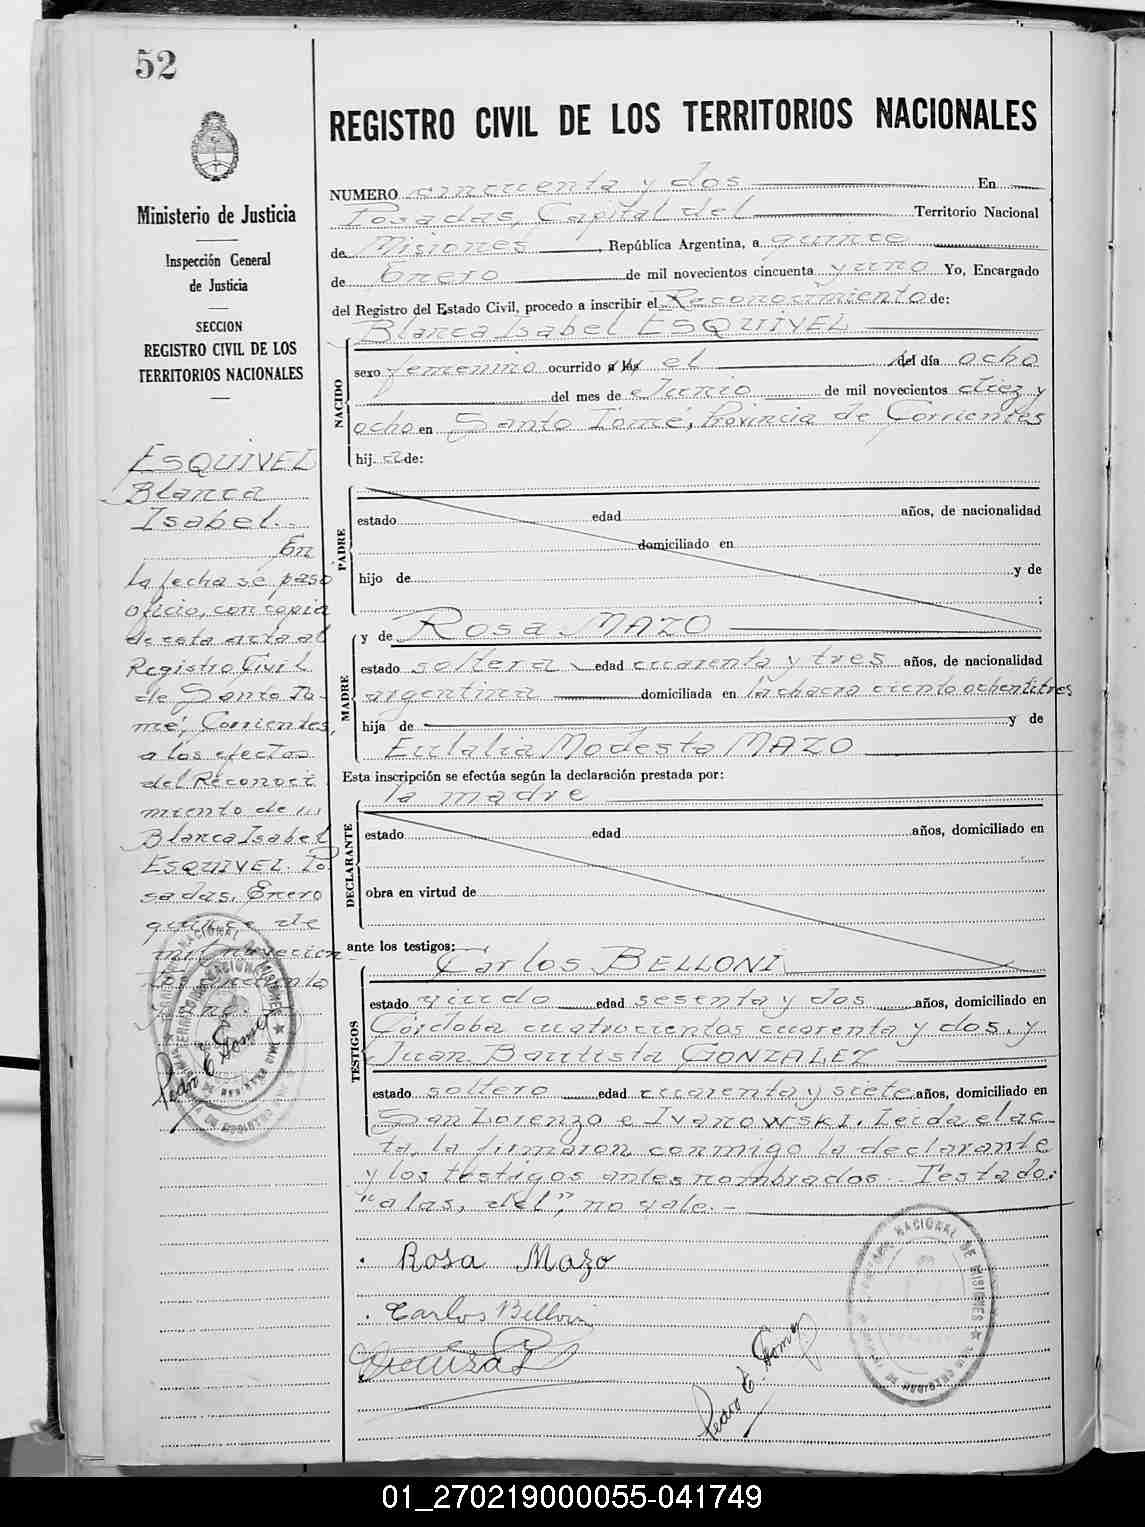 52
Ministerio de Justicia
Inspección General
de Justicia
SECCION
REGISTRO CIVIL DE LOS
TERRITORIOS NACIONALES
ESQUIVEL
Blanca
Isabel.
En
la fecha se pasó
oficio, con copia
de esta acta al
Registro Civil
de Santo To-
mé, Corrientes,
a los efectos
del Reconoci
miento de
Blanca Isabel
ESQUIVEL. Po
sadas, Enero
quince de
mil novecien-
tos cincuenta
y uno.
Pedro E. Gomez
REGISTRO CIVIL DE LOS TERRITORIOS NACIONALES
NUMERO cincuenta y dos En
Posadas, Capital del Territorio Nacional
de Misiones, República Argentina, a quince
de Enero de mil novecientos cincuenta y uno Yo, Encargado
del Registro del Estado Civil, procedo a inscribir el Reconocimiento de:
Blanca Isabel ESQUIVEL
NACIDO
sexo femenino ocurrido a las el del día ocho
del mes de Junio de mil novecientos diez y
ocho en Santo Tomé, Provincia de Corrientes
hija de:
PADRE
estado edad años, de nacionalidad
domiciliado en
hijo de y de
;
MADRE
y de Rosa MAZO
estado soltera edad cuarenta y tres años, de nacionalidad
argentina domiciliada en la chacra ciento ochentitres
hija de y de
Eulalia Modesta MAZO
Esta inscripción se efectúa según la declaración prestada por:
la madre
DECLARANTE
estado edad años, domiciliado en
obra en virtud de
ante los testigos:
TESTIGOS
Carlos BELLONI
estado viudo edad sesenta y dos años, domiciliado en
Córdoba cuatrocientos cuarenta y dos, y
Juan Bautista GONZALEZ
estado soltero edad cuarenta y siete años, domiciliado en
San Lorenzo e Ivanowski. Leida el ac-
ta, la firmaron conmigo la declarante
y los testigos antes nombrados. Testado:
"a las, del", no vale.-
Rosa Mazo
Carlos Belloni
Pedro E. Gomez
01_270219000055-041749